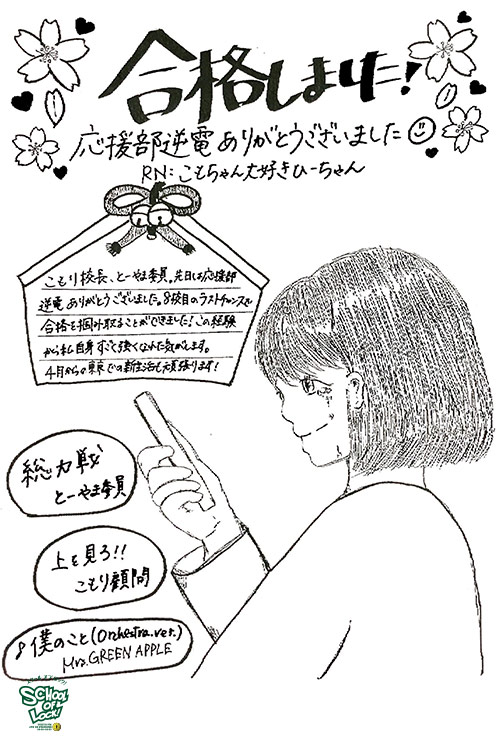 合格しました!
応援部逆電ありがとうございました
RN:こもちゃん大好きひーちゃん
こもり校長、とーやま委員。先日は応援部
逆電ありがとうございました。8校目のラストチャンスで
合格を掴み取ることができました!この経験
から私自身ずっと強くなれた気がします。
4月からの東京での新生活も頑張ります!
総力戦
とーやま委員
上を見ろ!!
こもり顧問
♪僕のこと(Orchestra.ver.)
Mrs.GREEN APPLE
SCHOOL
OF
LOCK!